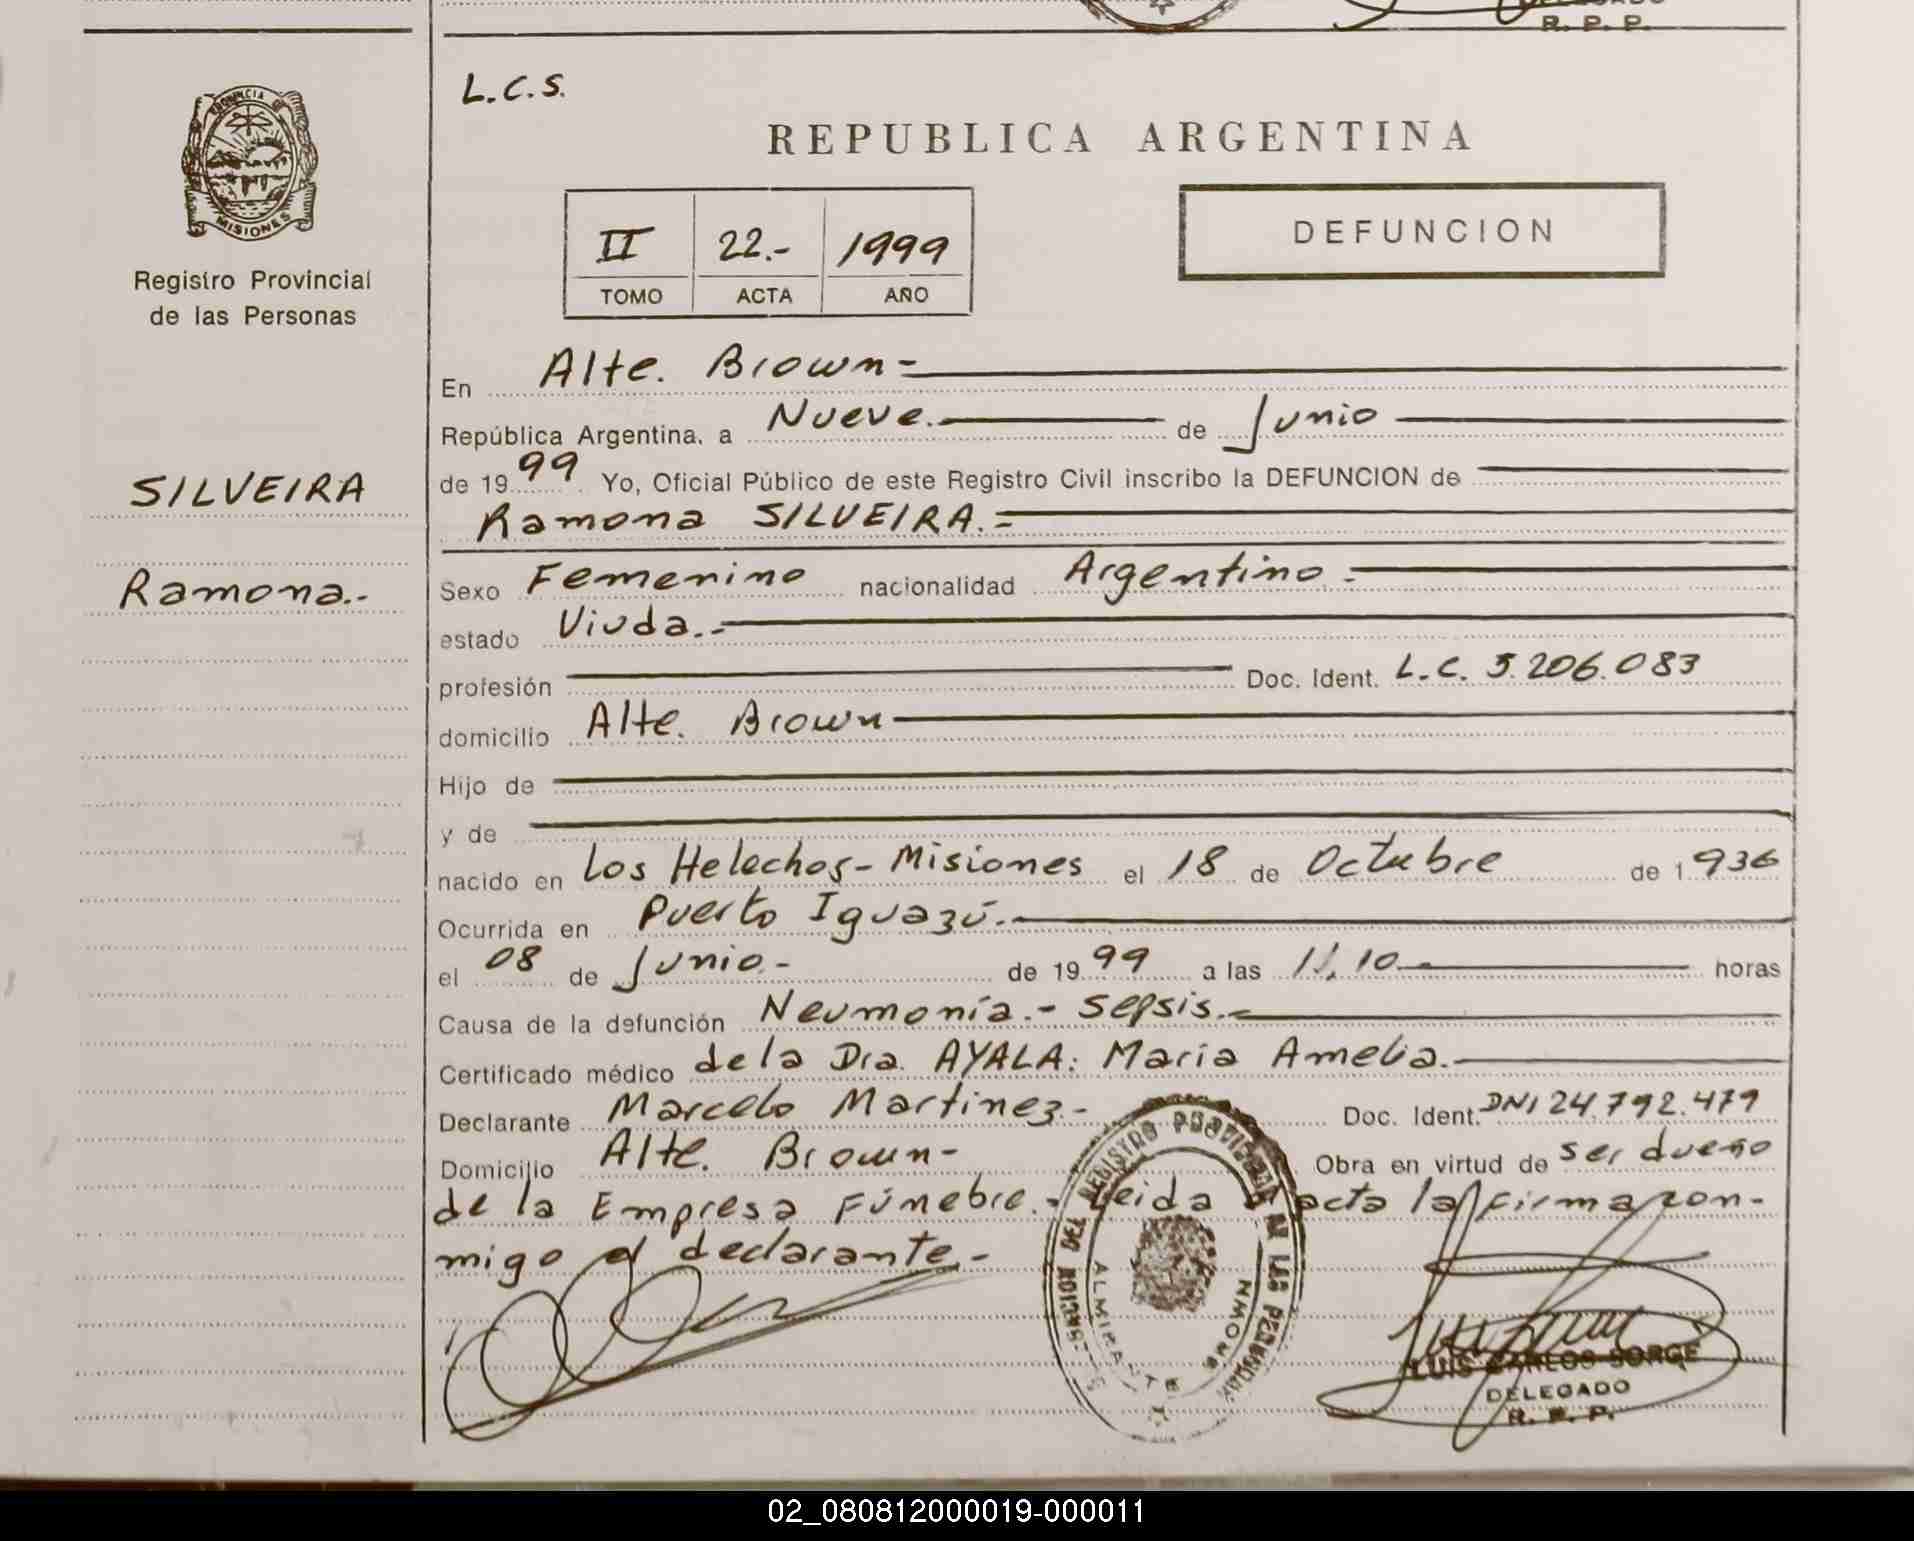 R. P. P.
L.C.S.
REPUBLICA ARGENTINA
PROVINCIA DE
MISIONES
II 22.- 1999
TOMO ACTA AÑO
DEFUNCION
Registro Provincial
de las Personas
SILVEIRA
Ramona.-
En Alte. Brown-
República Argentina, a Nueve. de Junio
de 1999 Yo, Oficial Público de este Registro Civil inscribo la DEFUNCION de
Ramona SILVEIRA.=
Sexo Femenino nacionalidad Argentino.-
estado Viuda.-
profesión Doc. Ident. L.C. 5.206.083
domicilio Alte. Brown
Hijo de
y de
nacido en Los Helechos-Misiones el 18 de Octubre de 1936
Ocurrida en Puerto Iguazú.-
el 08 de Junio.- de 1999 a las 11,10 horas
Causa de la defunción Neumonía.- Sepsis.-
Certificado médico de la Dra. AYALA: Maria Amelia.
Declarante Marcelo Martinez.- Doc. Ident. DNI 24.792.479
Domicilio Alte. Brown- Obra en virtud de ser dueño
de la Empresa Fúnebre.- Leida el acta la firma con-
migo el declarante.-
DEL REGISTRO PROVINCIAL DE LAS PERSONAS
ALMIRANTE BROWN
LUIS CARLOS BORGE
DELEGADO
R. P. P.
02_080812000019-000011